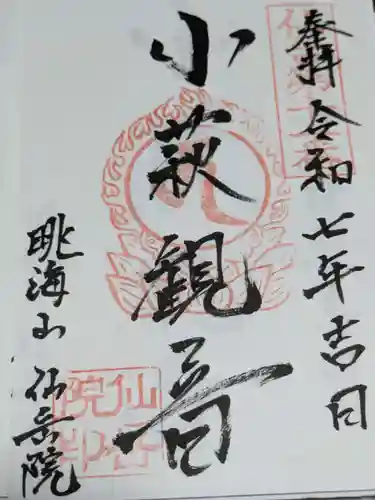 奉拝 令和七年吉日
小萩観音
眺海山 仙岳院
仙岳院印